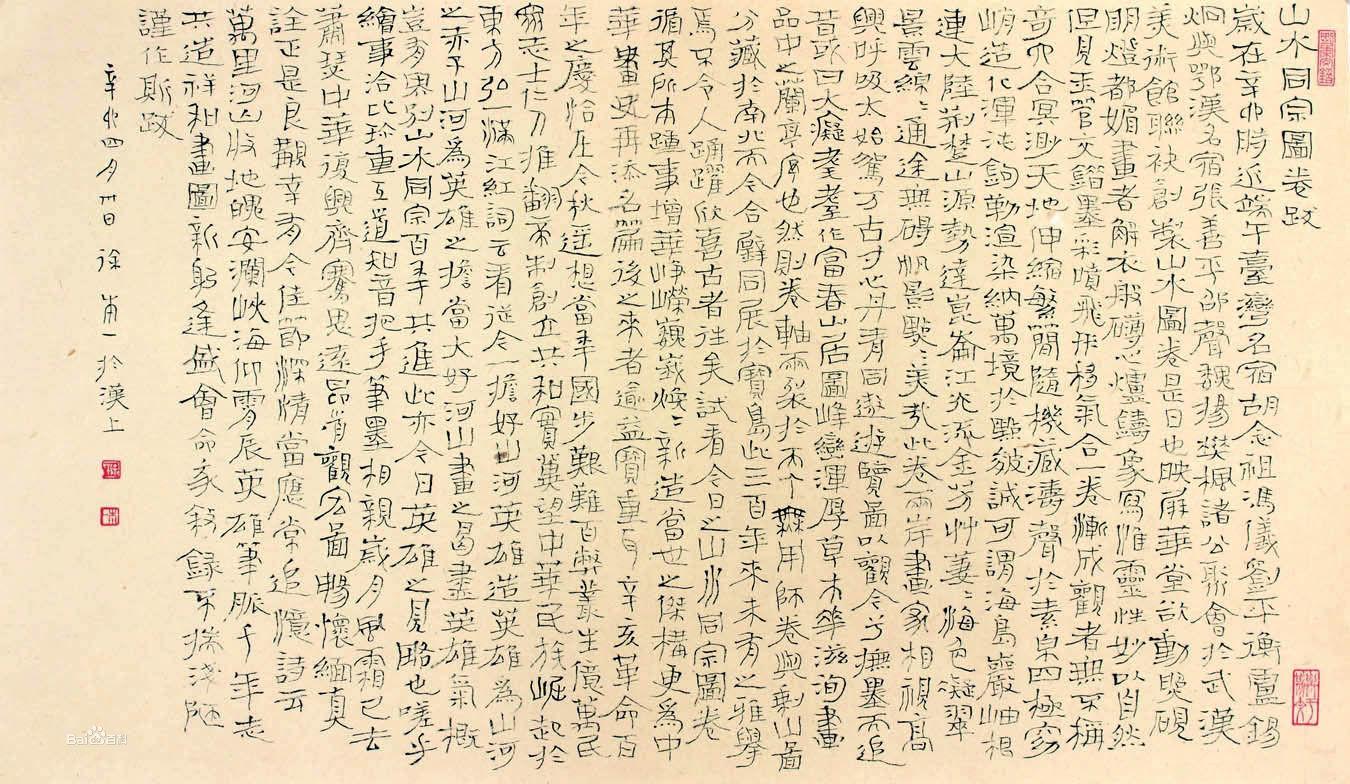 山水同宗圖卷跋
歲在辛卯時近端午臺灣名宿胡念祖馮儀劉平衡盧錫
炯與鄂漢名宿張善平邵聲魏揚樊楓諸公聚會於武漢
美術館聯袂創製山水圖卷是日也映屏華堂欲動硯
明燈都媚畫者解衣般礴心爐鑄象寫惟靈性妙以自然
但見玉管交錯墨彩噴飛形移氣合一卷漸成觀者無不稱
奇六合冥渺天地伸縮繁簡隨機藏濤聲於素帛四極窈
峭造化渾沌鉤勒渲染納萬境於點皴誠可謂海島巖岫相
連大陸荊楚山源勢達崑崙江流金芳艸萋〻海色凝翠
景雲綿〻通途無碍帆影點〻美哉此卷兩岸畫家相視高
興呼吸太始駕万古寸心丹青同遊遊覽畐以觀今兮撫墨而追
昔或曰大癡耄耋作富春山居圖峰巒渾厚草木華滋洵畫
品中之蘭亭序也然則卷軸兩裂於不个無用師卷與剩山畐
分藏於南北而今合璧同展於寶島此三百年來未有之雅舉
焉不令人踴躍欣喜古者往矣試看今日之山水同宗圖卷
循其所本踵事增華崢嶸巍峩煥〻新造當世之傑構更為中
華畫史再添名篇後之來者逾益寶重自辛亥革命百
年之慶恰在今秋遥想當年國步艱難百弊叢生億萬民
衆志士仁人推翻帝制創立共和實冀望中華民族崛起於
東方弘一滿江紅詞云看從今一擔好山河英雄造英雄為山河
之赤子山河為英雄之擔當大好河山畫之曷盡英雄氣概
豈有異别山水同宗百年共進此亦今日英雄之見略也嗟乎
繪事洽比珍重互道知音把手筆墨相親歲月風霜已去
蕭瑟中華復興齊騫思遠昂首觀宏畐暢懷緬真
詮正是良覿幸有令佳節深情當應常追憶詩云
萬里河山收地魄安瀾峽海仰霄辰英雄筆脈千年志
共造祥和畫圖新躬逢盛會命豕敘錄不揣淺陋
謹作斯跋
辛卯四月卅日徐本一於漢上
Baidu百科